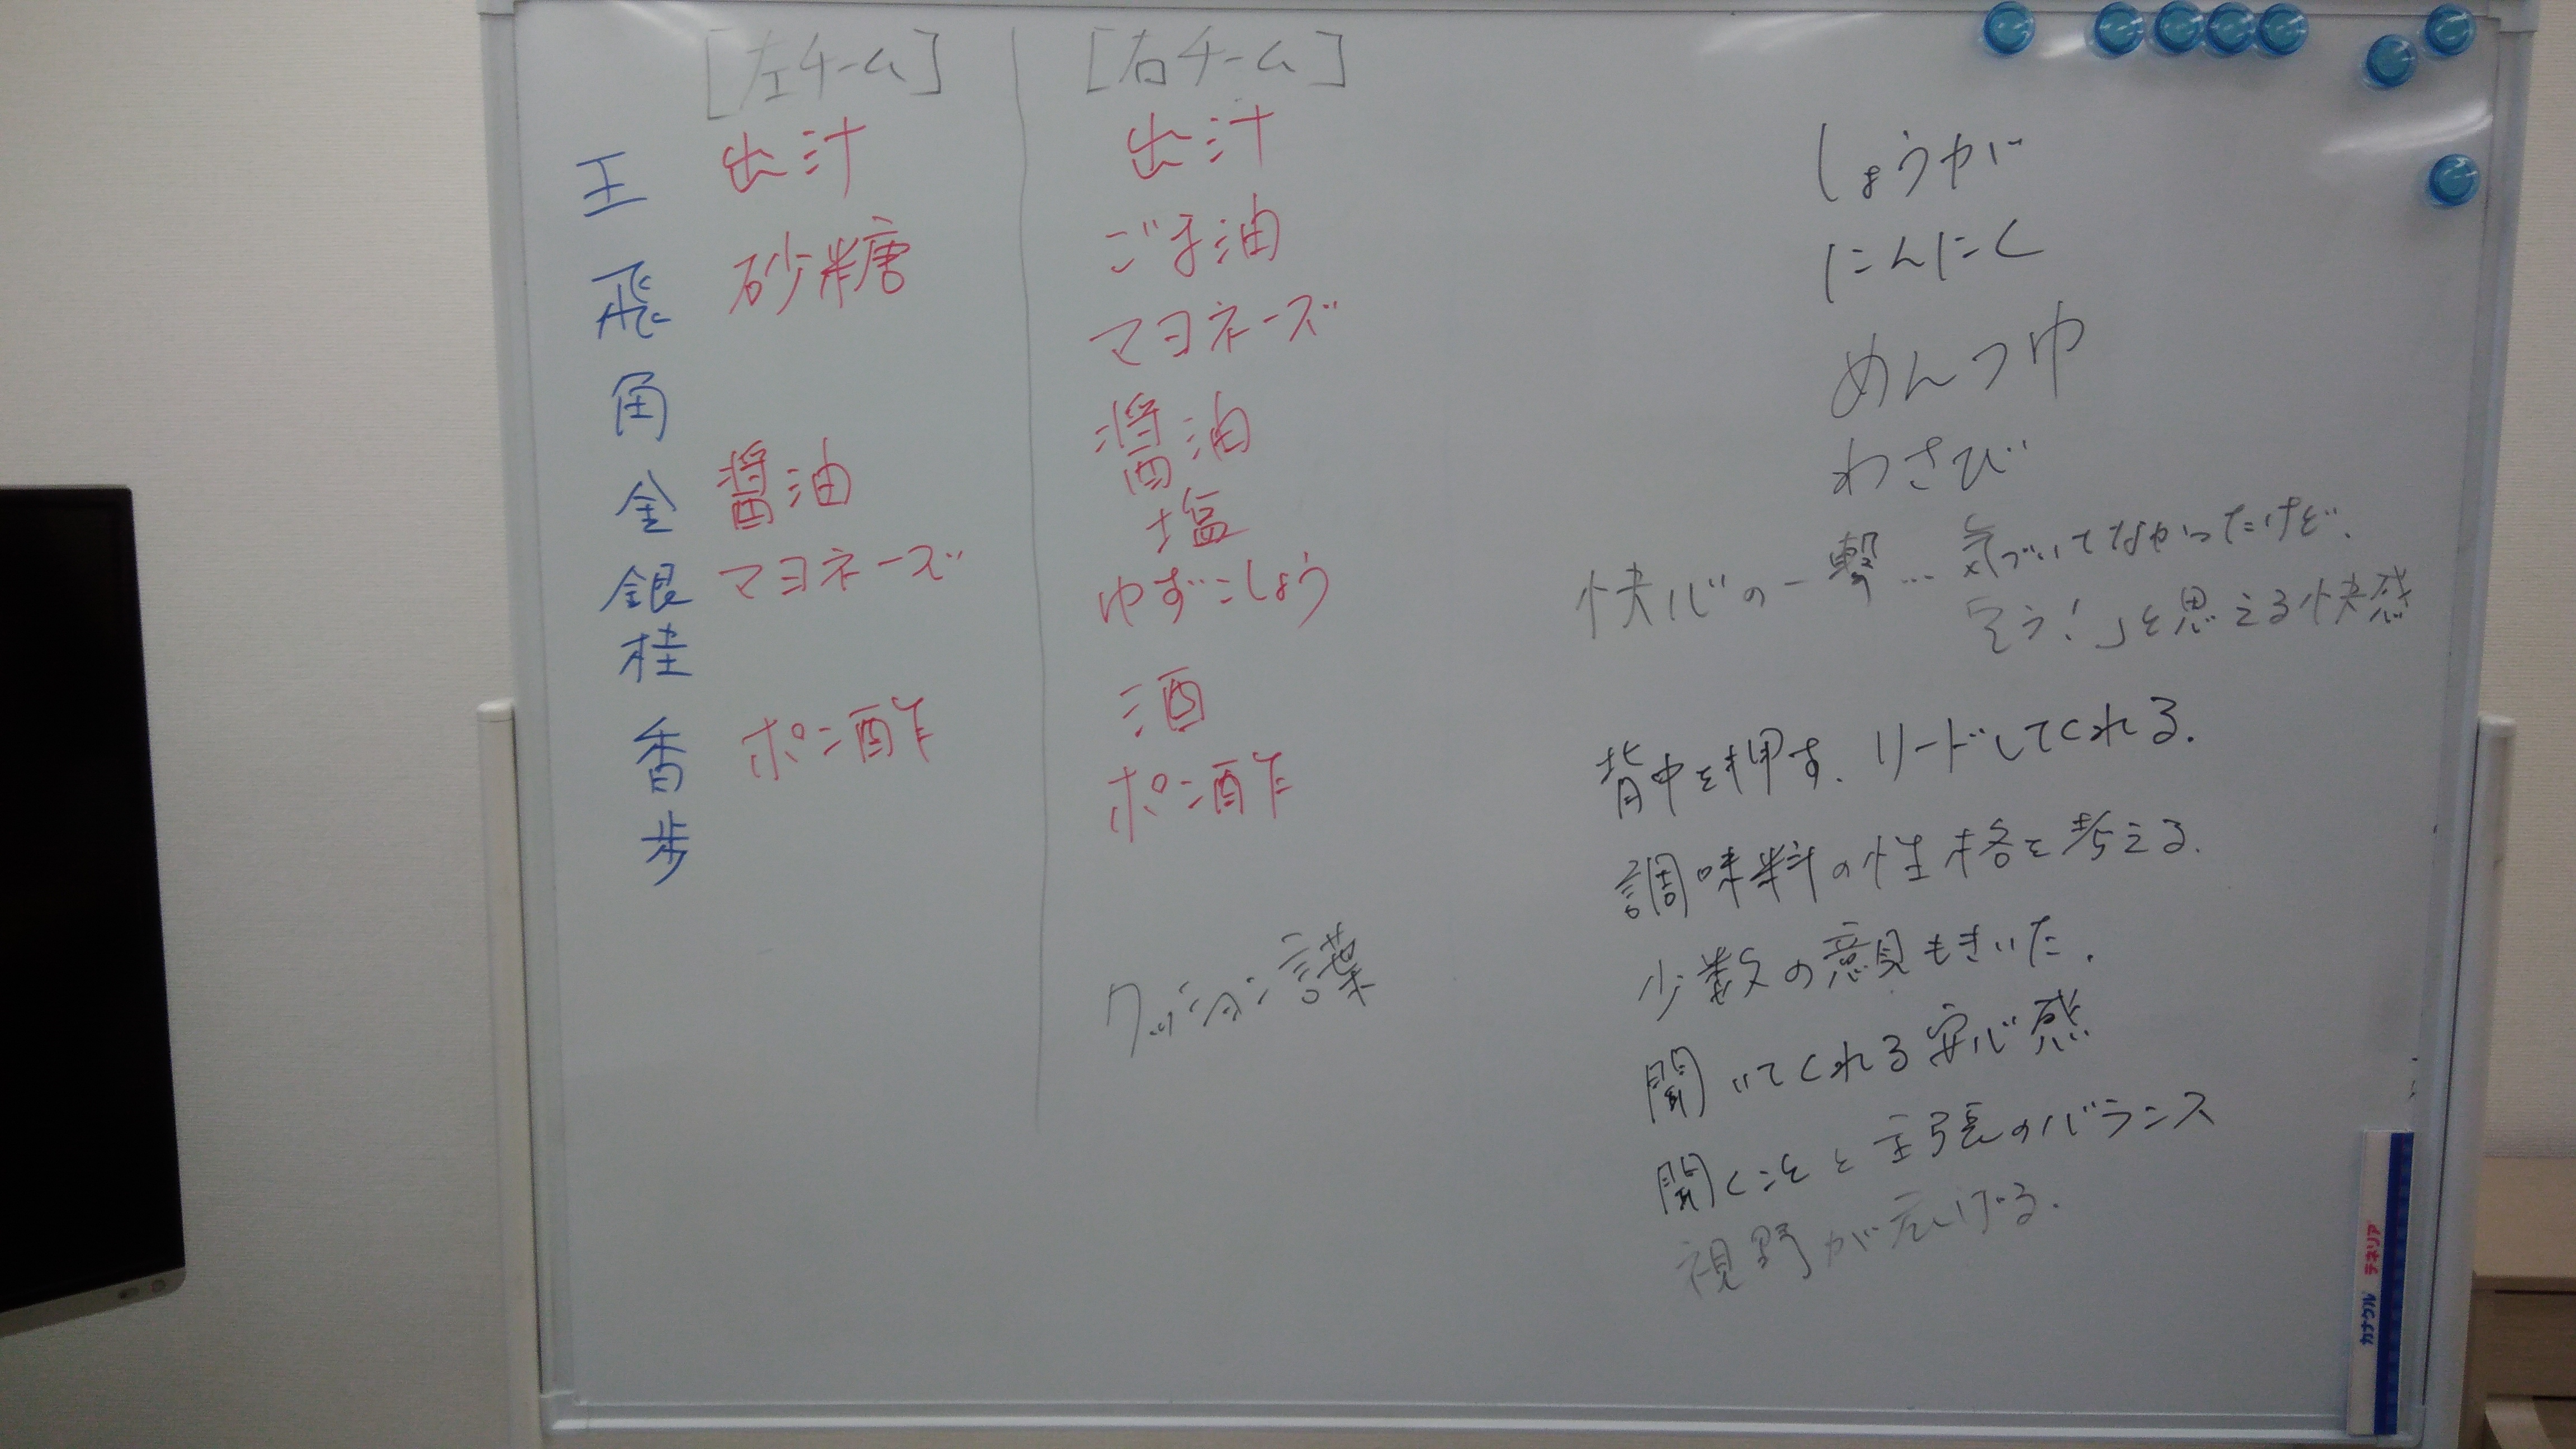 [左チーム]
[右チーム]
王 出汁 出汁
飛 砂糖 ごま油
角 マヨネーズ
金 醤油 醤油
銀 マヨネーズ 塩
桂 ゆずこしょう
香 ポン酢 酒
歩 ポン酢
クッション言葉
しょうが
にんにく
めんつゆ
わさび
快心の一撃… 気づいてなかったけど、
そう!」と思える快感
背中を押す、リードしてくれる。
調味料の性格を考える。
少数の意見もきいた。
聞いてくれる安心感
聞くことと主張のバランス
視野が広げる。
カナグル テネリア